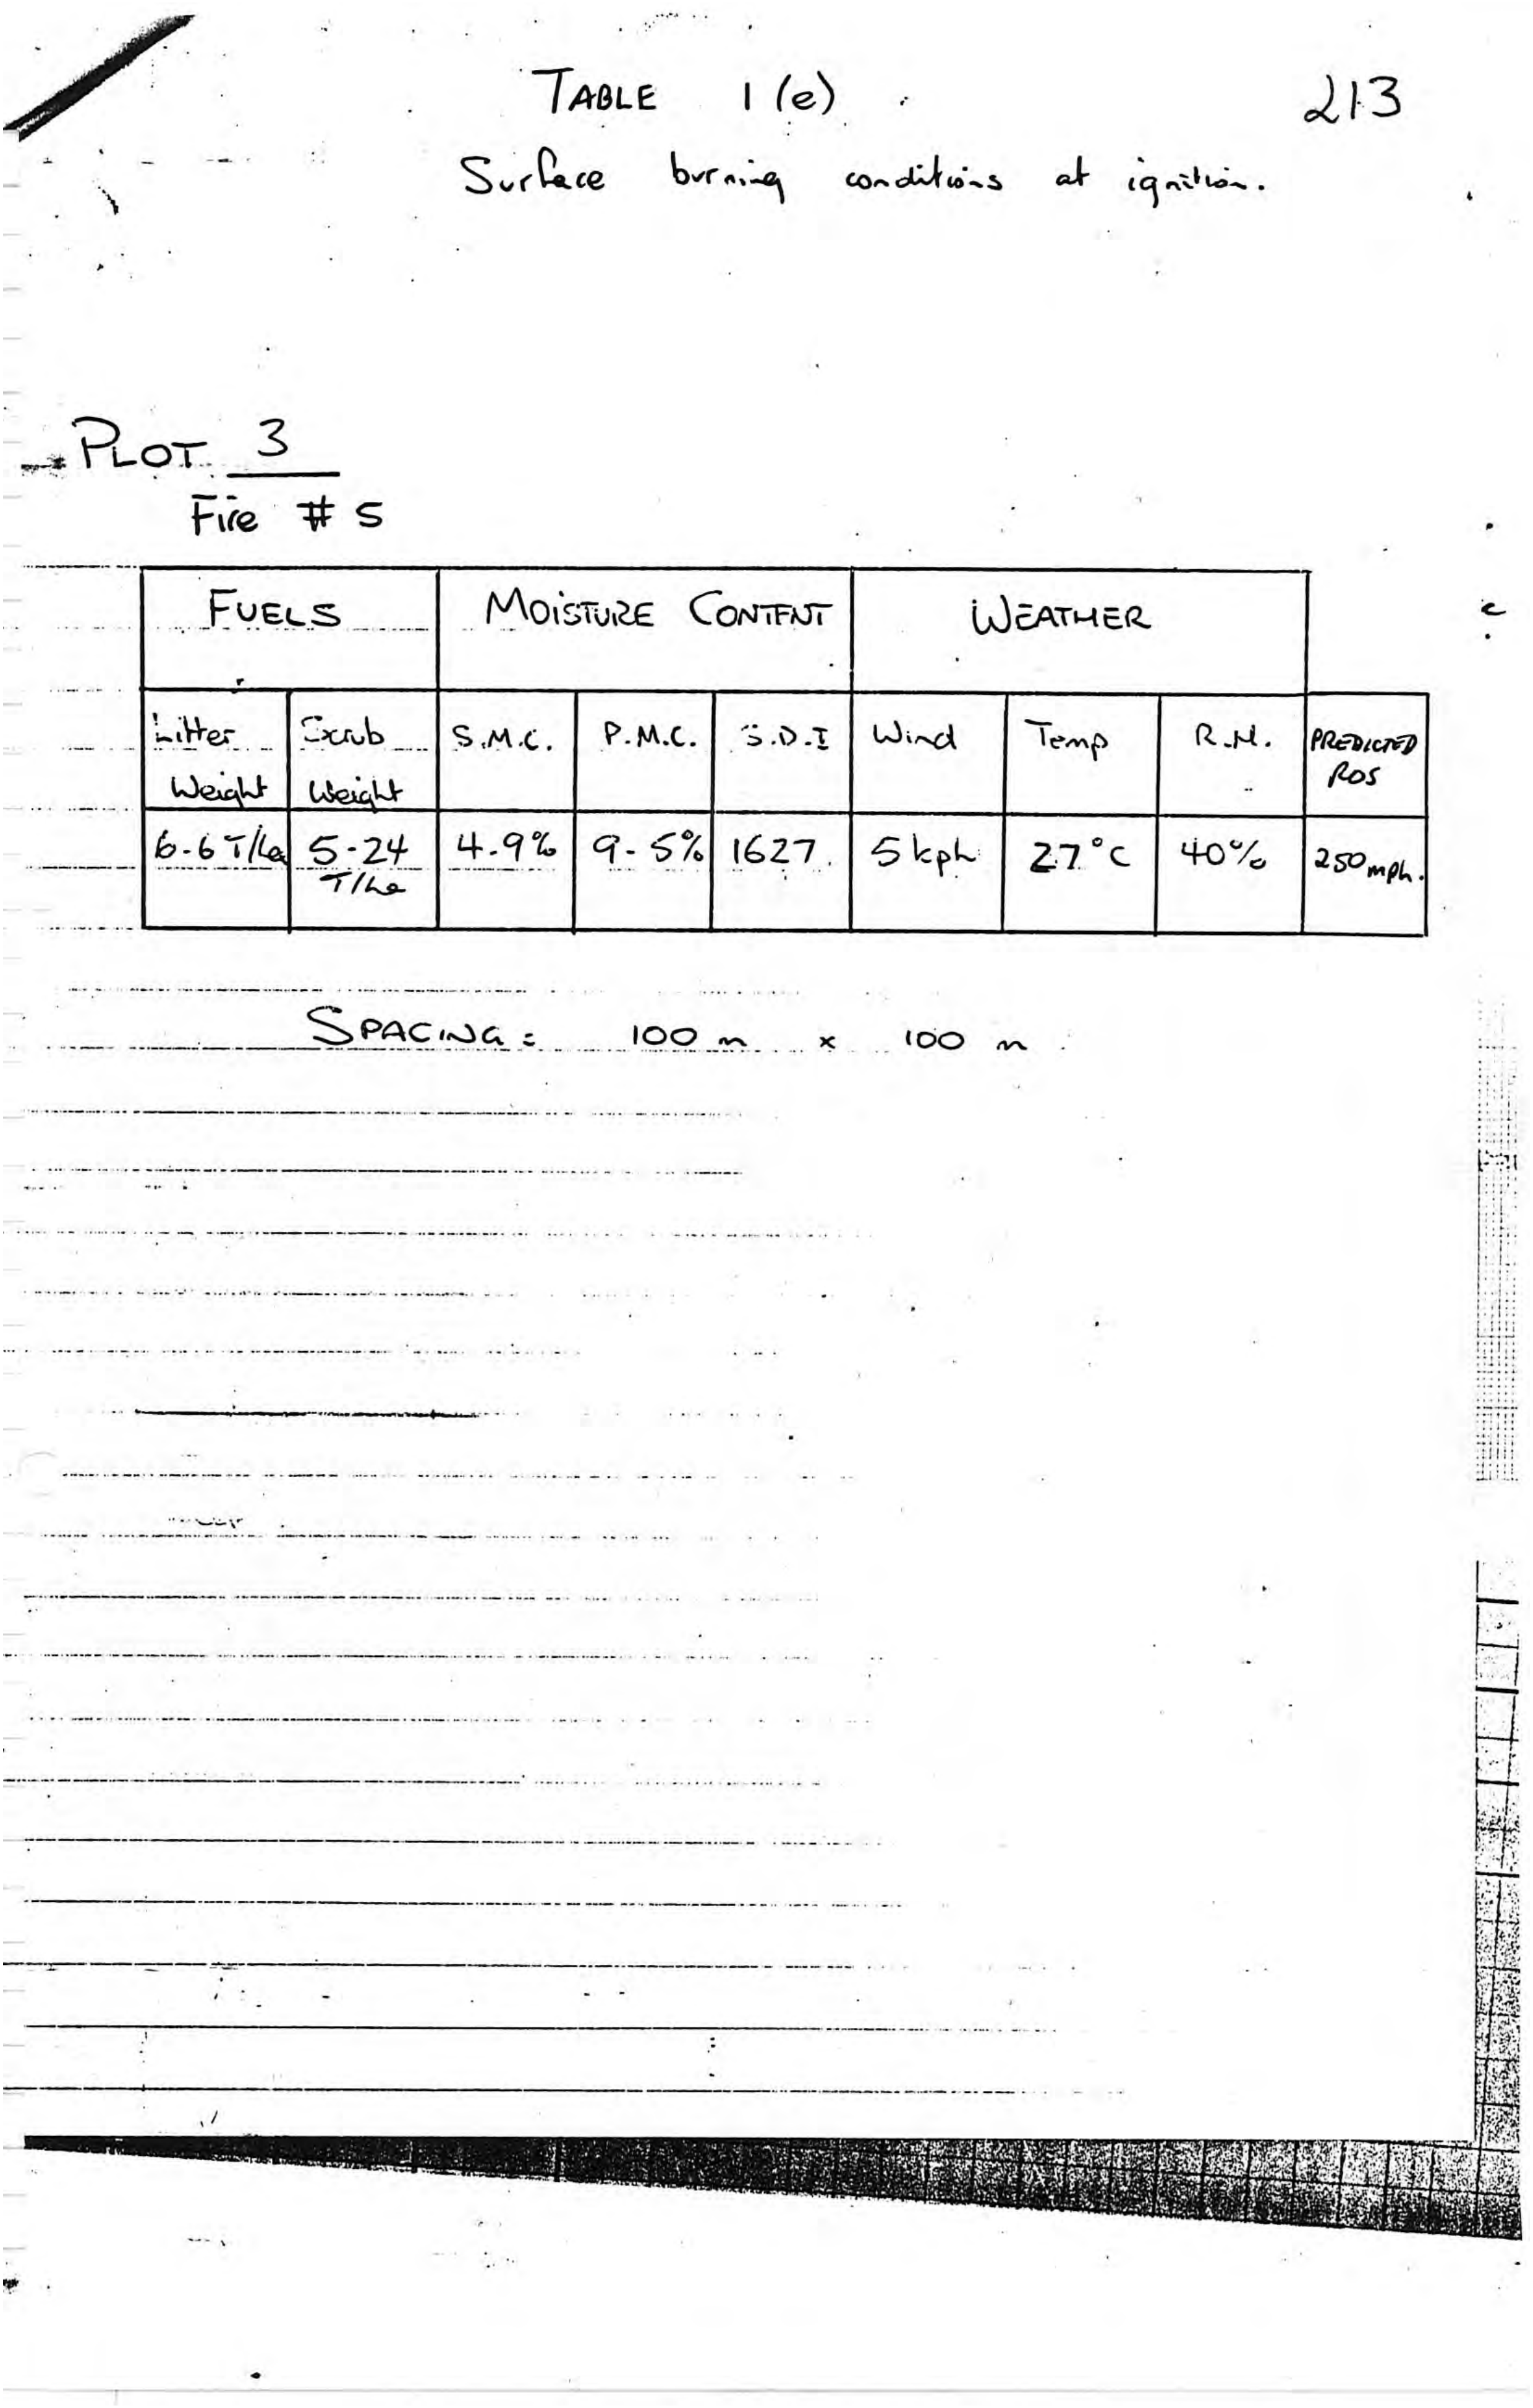 TABLE 1 (e)
213
Surface burning conditions at ignition.
PLOT 3
Fire # 5
FUELS MOISTURE CONTENT WEATHER
Litter Weight Scrub Weight S.M.C. P.M.C. S.D.I Wind Temp R.H. PREDICTED ROS
6.6 T/ha 5.24 T/ha 4.9% 9.5% 1627. 5 kph 27°C 40% 250 mph.
SPACING = 100 m x 100 m